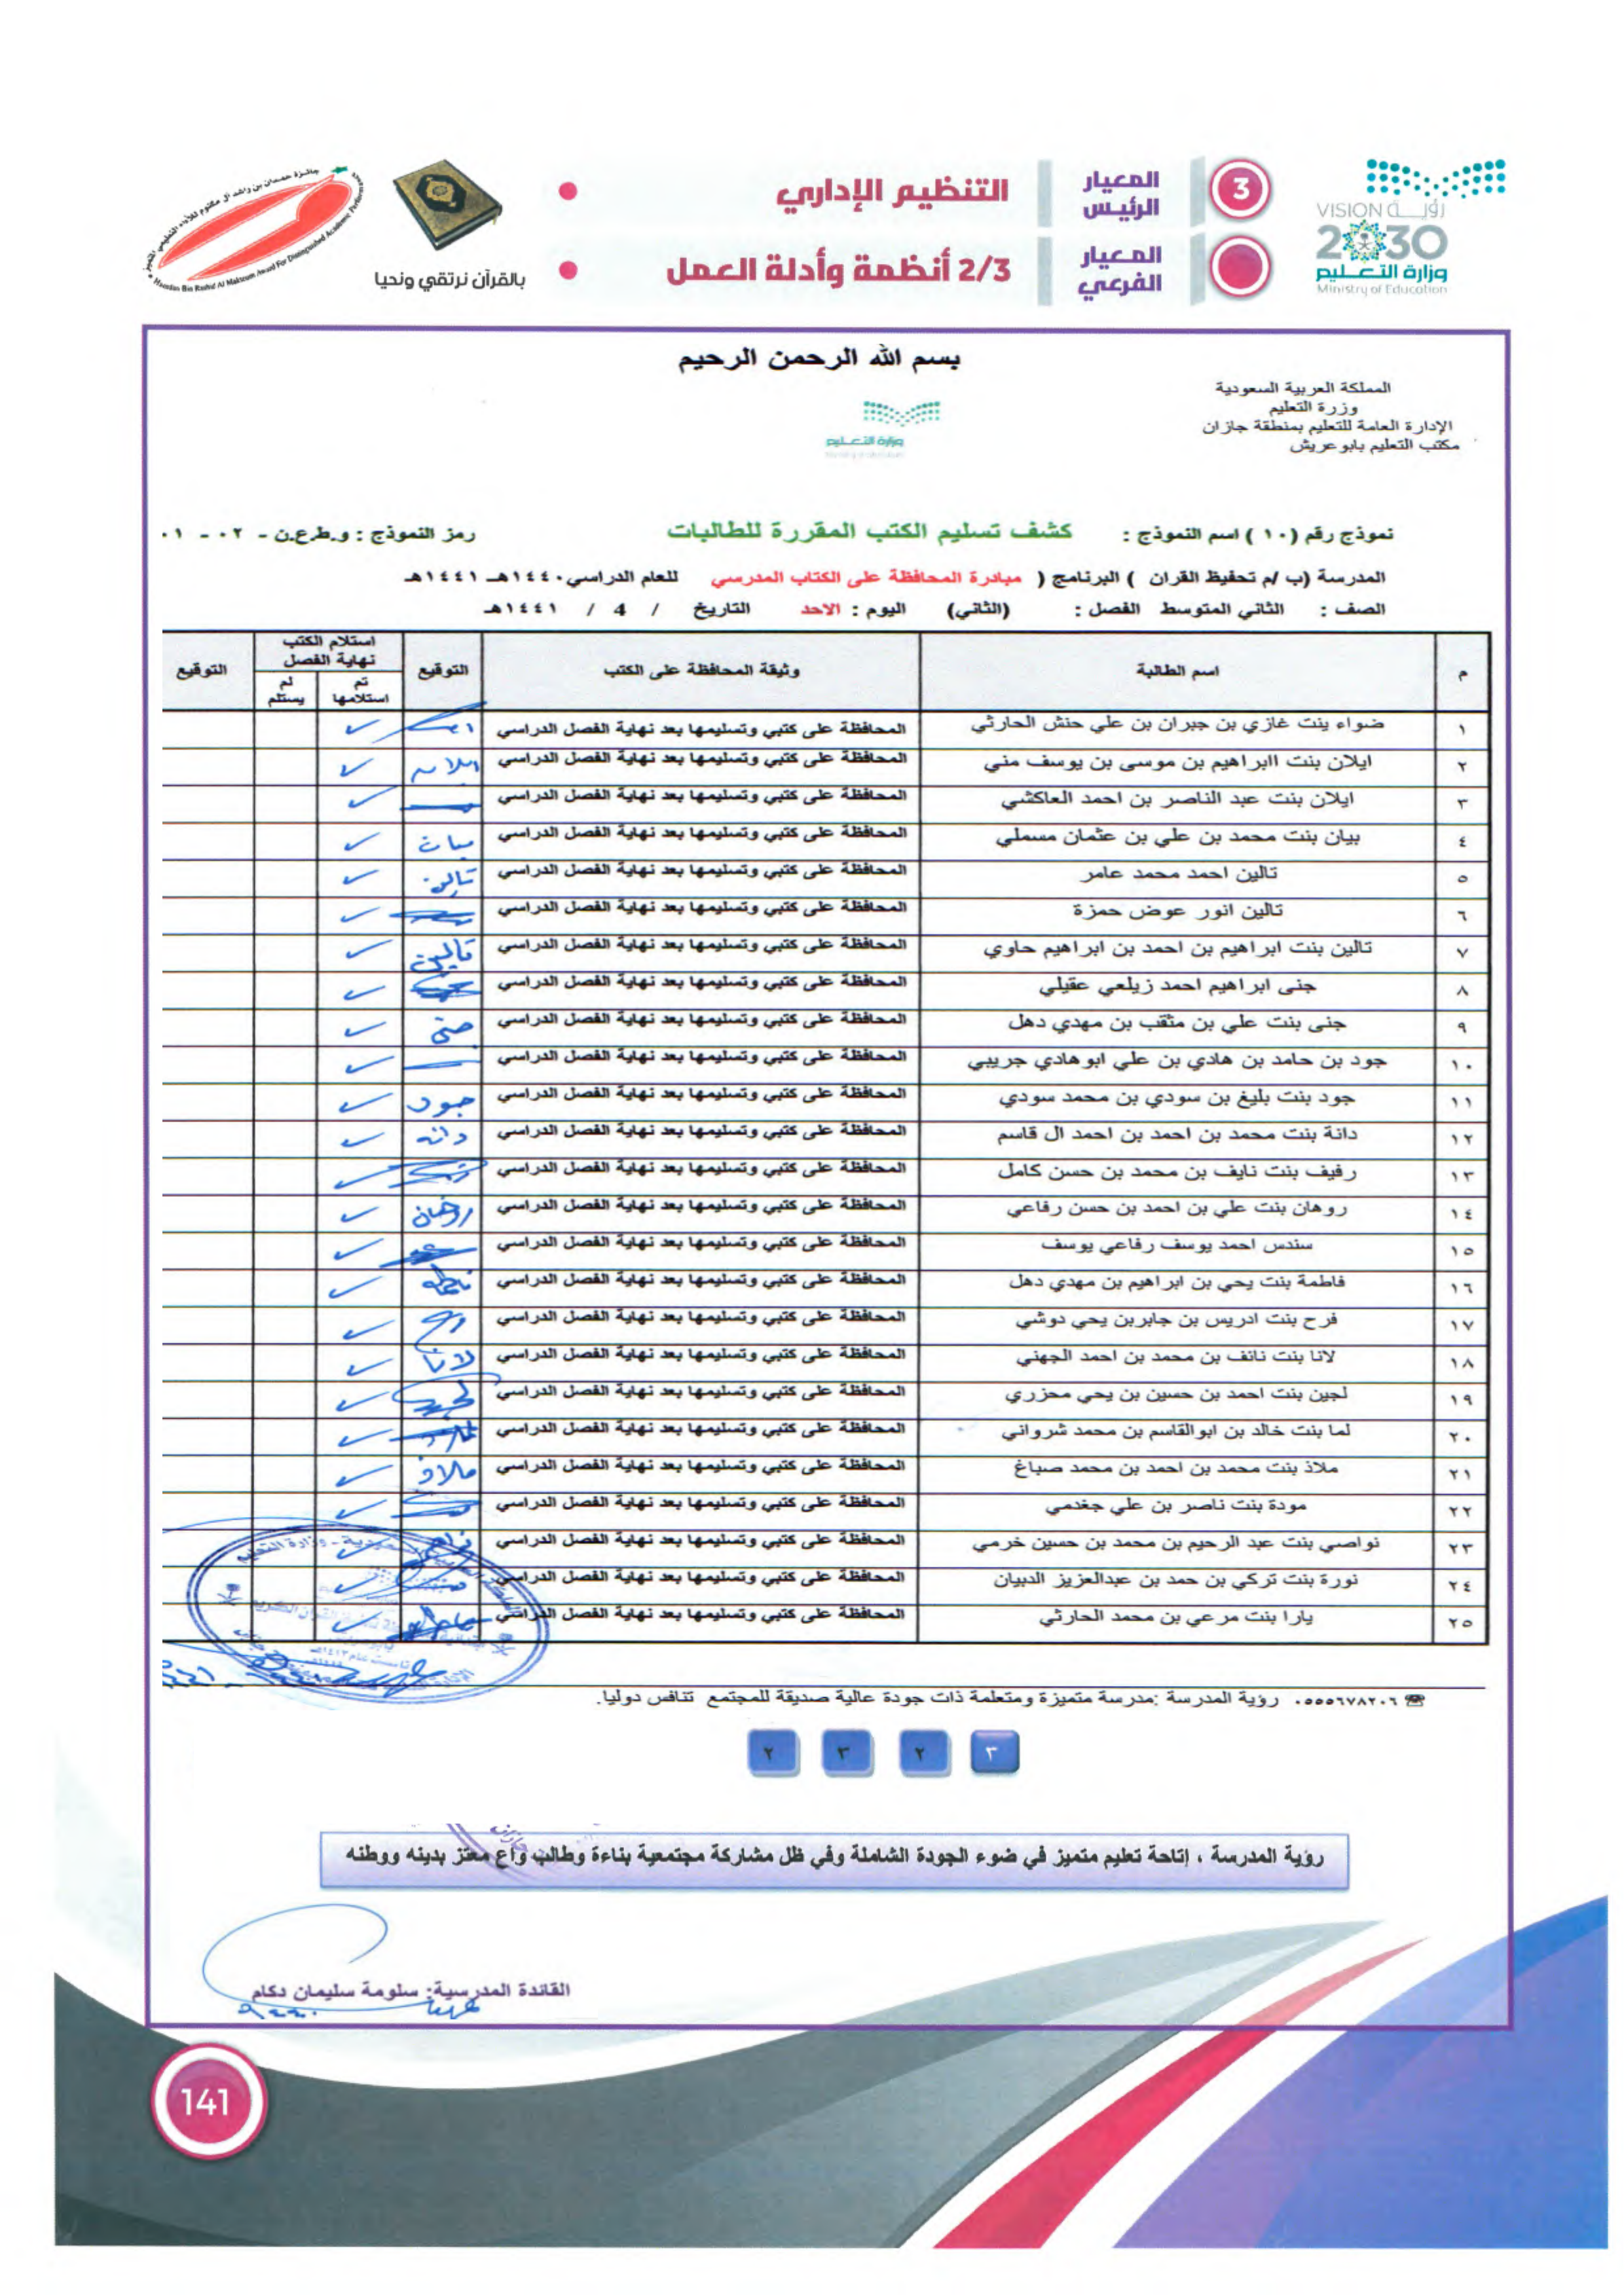 المعيار الرئيس
3
التنظيم الإداري
المعيار الفرعي
2/3 أنظمة وأدلة العمل
بالقرآن نرتقي ونحيا
جائزة حمدان بن راشد آل مكتوم للأداء التعليمي المتميز
Hamdan Bin Rashid Al Maktoum Award For Distinguished Academic Performance
VISION رؤية
2030
وزارة التعليم
Ministry of Education
بسم الله الرحمن الرحيم
المملكة العربية السعودية
وزرة التعليم
الإدارة العامة للتعليم بمنطقة جازان
مكتب التعليم بابو عريش
وزارة التعليم
Ministry of Education
نموذج رقم (١٠ ) اسم النموذج : كشف تسليم الكتب المقررة للطالبات رمز النموذج : و.ط.ع.ن - ٠٢ - ٠١
المدرسة (ب /م تحفيظ القران ) البرنامج ( مبادرة المحافظة على الكتاب المدرسي للعام الدراسي١٤٤٠هـ ١٤٤١هـ
الصف : الثاني المتوسط الفصل : (الثاني) اليوم : الاحد التاريخ / 4 / ١٤٤١هـ
م اسم الطالبة وثيقة المحافظة على الكتب التوقيع استلام الكتب نهاية الفصل التوقيع
تم استلامها لم يستلم
١ ضواء بنت غازي بن جبران بن علي حنش الحارثي المحافظة على كتبي وتسليمها بعد نهاية الفصل الدراسي ✓
٢ ايلان بنت اابراهيم بن موسى بن يوسف مني المحافظة على كتبي وتسليمها بعد نهاية الفصل الدراسي ايلان ✓
٣ ايلان بنت عبد الناصر بن احمد العاكشي المحافظة على كتبي وتسليمها بعد نهاية الفصل الدراسي ✓
٤ بيان بنت محمد بن علي بن عثمان مسملي المحافظة على كتبي وتسليمها بعد نهاية الفصل الدراسي بيان ✓
٥ تالين احمد محمد عامر المحافظة على كتبي وتسليمها بعد نهاية الفصل الدراسي تالين ✓
٦ تالين انور عوض حمزة المحافظة على كتبي وتسليمها بعد نهاية الفصل الدراسي ✓
٧ تالين بنت ابراهيم بن احمد بن ابراهيم حاوي المحافظة على كتبي وتسليمها بعد نهاية الفصل الدراسي تالين ✓
٨ جنى ابراهيم احمد زيلعي عقيلي المحافظة على كتبي وتسليمها بعد نهاية الفصل الدراسي ✓
٩ جنى بنت علي بن مثقب بن مهدي دهل المحافظة على كتبي وتسليمها بعد نهاية الفصل الدراسي جنى ✓
١٠ جود بن حامد بن هادي بن علي ابوهادي جريبي المحافظة على كتبي وتسليمها بعد نهاية الفصل الدراسي ✓
١١ جود بنت بليغ بن سودي بن محمد سودي المحافظة على كتبي وتسليمها بعد نهاية الفصل الدراسي جود ✓
١٢ دانة بنت محمد بن احمد بن احمد ال قاسم المحافظة على كتبي وتسليمها بعد نهاية الفصل الدراسي دانه ✓
١٣ رفيف بنت نايف بن محمد بن حسن كامل المحافظة على كتبي وتسليمها بعد نهاية الفصل الدراسي ✓
١٤ روهان بنت علي بن احمد بن حسن رفاعي المحافظة على كتبي وتسليمها بعد نهاية الفصل الدراسي روهان ✓
١٥ سندس احمد يوسف رفاعي يوسف المحافظة على كتبي وتسليمها بعد نهاية الفصل الدراسي ✓
١٦ فاطمة بنت يحي بن ابراهيم بن مهدي دهل المحافظة على كتبي وتسليمها بعد نهاية الفصل الدراسي فاطمه ✓
١٧ فرح بنت ادريس بن جابربن يحي دوشي المحافظة على كتبي وتسليمها بعد نهاية الفصل الدراسي ✓
١٨ لانا بنت نائف بن محمد بن احمد الجهني المحافظة على كتبي وتسليمها بعد نهاية الفصل الدراسي لانا ✓
١٩ لجين بنت احمد بن حسين بن يحي محزري المحافظة على كتبي وتسليمها بعد نهاية الفصل الدراسي ✓
٢٠ لما بنت خالد بن ابوالقاسم بن محمد شرواني المحافظة على كتبي وتسليمها بعد نهاية الفصل الدراسي ✓
٢١ ملاذ بنت محمد بن احمد بن محمد صباغ المحافظة على كتبي وتسليمها بعد نهاية الفصل الدراسي ملاذ ✓
٢٢ مودة بنت ناصر بن علي جغدمي المحافظة على كتبي وتسليمها بعد نهاية الفصل الدراسي ✓
٢٣ نواصي بنت عبد الرحيم بن محمد بن حسين خرمي المحافظة على كتبي وتسليمها بعد نهاية الفصل الدراسي ✓
٢٤ نورة بنت تركي بن حمد بن عبدالعزيز الدبيان المحافظة على كتبي وتسليمها بعد نهاية الفصل الدراسي ✓
٢٥ يارا بنت مرعي بن محمد الحارثي المحافظة على كتبي وتسليمها بعد نهاية الفصل الدراسي ✓
☎ ٠٥٥٥٦٧٨٢٠٦ رؤية المدرسة :مدرسة متميزة ومتعلمة ذات جودة عالية صديقة للمجتمع تنافس دوليا.
٣ ٢ ٣ ٢
رؤية المدرسة ، إتاحة تعليم متميز في ضوء الجودة الشاملة وفي ظل مشاركة مجتمعية بناءة وطالب واع معتز بدينه ووطنه
القائدة المدرسية: سلومة سليمان دكام
141